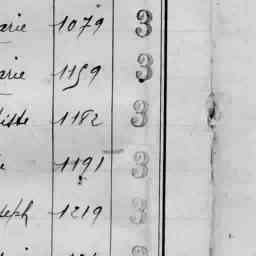 arie 1079 3
arie 1159 3
iste 1182 3
e 1191 3
seph 1219 3
3